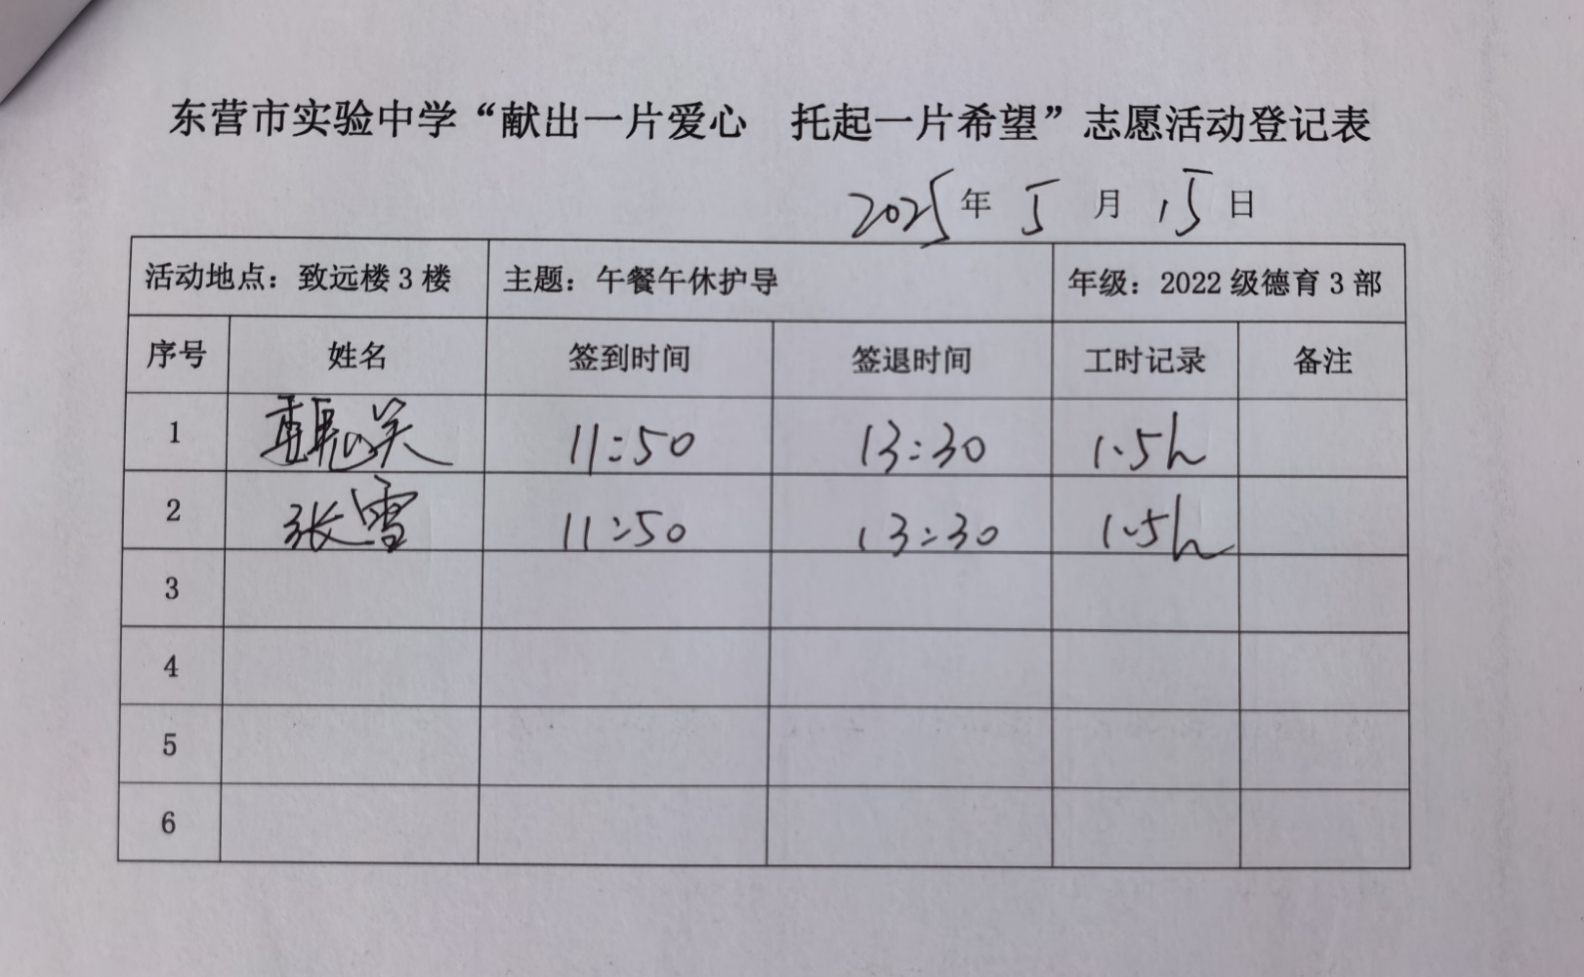 东营市实验中学“献出一片爱心 托起一片希望”志愿活动登记表
2025年 5 月 15 日
活动地点：致远楼 3 楼 主题：午餐午休护导 年级：2022 级德育 3 部
序号 姓名 签到时间 签退时间 工时记录 备注
1 11:50 13:30 1.5h
2 张雪 11:50 13:30 1.5h
3
4
5
6